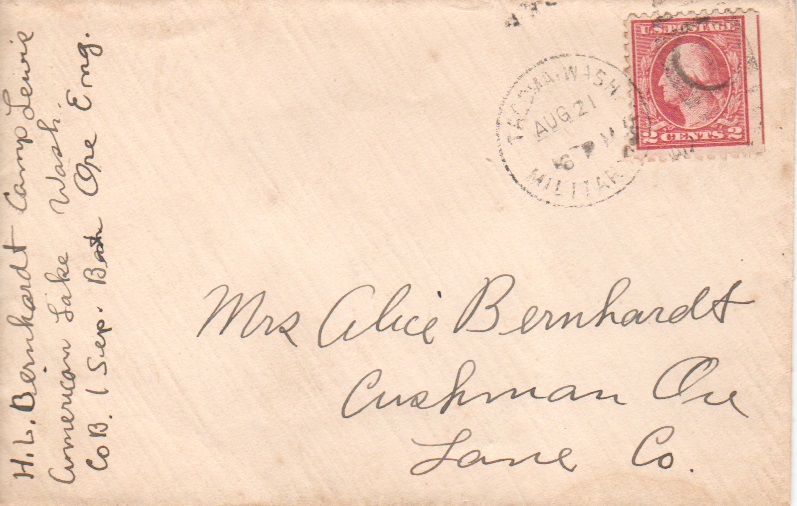 H. L. Bernhardt Camp Lewis
American Lake Wash.
Co B. 1 Sep. Batt Ore Eng.
TACOMA-WASH
AUG 21
6 PM
MILITAR
U.S. POSTAGE
2 CENTS 2
Mrs Alice Bernhardt
Cushman Ore
Lane Co.